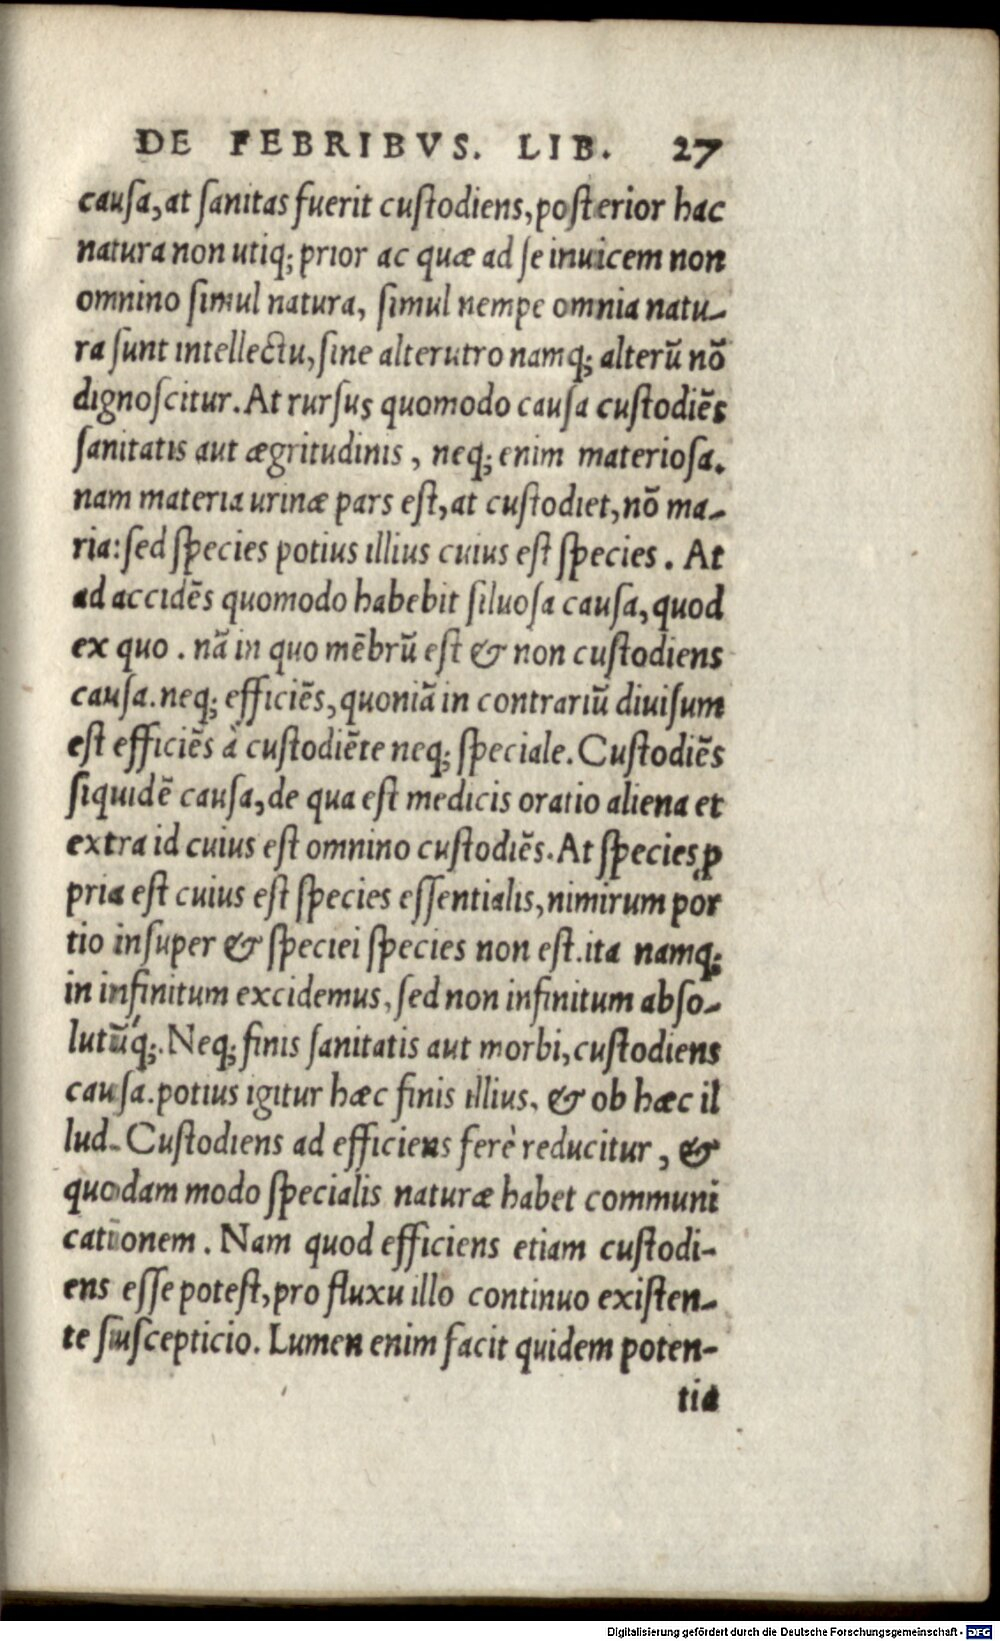 DE FEBRIBVS. LIB. 27
cauſa, at ſanitas fuerit cuſtodiens, poſterior hac
natura non utiq; prior ac quæ ad ſe inuicem non
omnino ſimul natura, ſimul nempe omnia natu-
ra ſunt intellectu, ſine alterutro namq; alterū nō
dignoſcitur. At rurſus quomodo cauſa cuſtodiēs
ſanitatis aut ægritudinis, neq; enim materioſa.
nam materia urinæ pars eſt, at cuſtodiet, nō ma-
ria: ſed ſpecies potius illius cuius eſt ſpecies. At
ad accidēs quomodo habebit ſiluoſa cauſa, quod
ex quo. nā in quo mēbrū eſt & non cuſtodiens
cauſa. neq; efficiēs, quoniā in contrariū diuiſum
eſt efficiēs à cuſtodiēte neq; ſpeciale. Cuſtodiēs
ſiquidē cauſa, de qua eſt medicis oratio aliena et
extra id cuius eſt omnino cuſtodiēs. At ſpecies ꝓ
pria eſt cuius eſt ſpecies eſſentialis, nimirum por
tio inſuper & ſpeciei ſpecies non eſt. ita namq;
in infinitum excidemus, ſed non infinitum abſo-
lutūq́;. Neq; finis ſanitatis aut morbi, cuſtodiens
cauſa. potius igitur hæc finis illius, & ob hæc il
lud. Cuſtodiens ad efficiens ferè reducitur, &
quodam modo ſpecialis naturæ habet communi
cationem. Nam quod efficiens etiam cuſtodi-
ens eſſe poteſt, pro fluxu illo continuo exiſten-
te ſuſcepticio. Lumen enim facit quidem poten-
tia
Digitalisierung gefördert durch die Deutsche Forschungsgemeinschaft - DFG